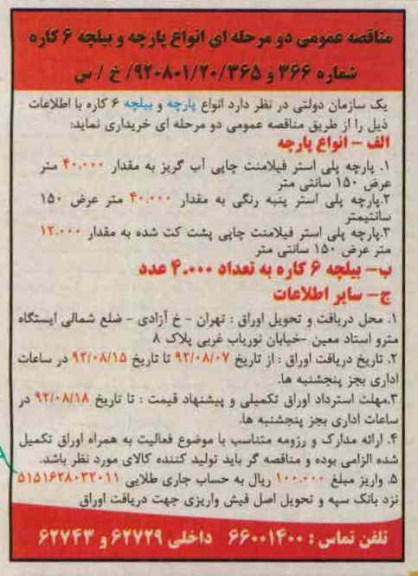 مناقصه عمومی دو مرحله ای انواع پارچه و بیلچه ۶ کاره
شماره ۳۶۶ و ۹۲۰۸۰۱/۲۰/۳۶۵/ خ / س
یک سازمان دولتی در نظر دارد انواع پارچه و بیلچه ۶ کاره با اطلاعات
ذیل را از طریق مناقصه عمومی دو مرحله ای خریداری نماید:
الف - انواع پارچه
۱. پارچه پلی استر فیلامنت چاپی آب گریز به مقدار ۴۰.۰۰۰ متر
عرض ۱۵۰ سانتی متر
۲.پارچه پلی استر پنبه رنگی به مقدار ۴۰.۰۰۰ متر عرض ۱۵۰
سانتیمتر
۳.پارچه پلی استر فیلامنت چاپی پشت کت شده به مقدار ۱۲.۰۰۰
متر عرض ۱۵۰ سانتی متر
ب- بیلچه ۶ کاره به تعداد ۴.۰۰۰ عدد
ج- سایر اطلاعات
۱. محل دریافت و تحویل اوراق : تهران - خ آزادی - ضلع شمالی ایستگاه
مترو استاد معین -خیابان نوریاب غربی پلاک ۸
۲. تاریخ دریافت اوراق : از تاریخ ۹۲/۰۸/۰۷ تا تاریخ ۹۲/۰۸/۱۵ در ساعات
اداری بجز پنجشنبه ها.
۳.مهلت استرداد اوراق تکمیلی و پیشنهاد قیمت : تا تاریخ ۹۲/۰۸/۱۸ در
ساعات اداری بجز پنجشنبه ها.
۴. ارائه مدارک و رزومه متناسب با موضوع فعالیت به همراه اوراق تکمیل
شده الزامی بوده و مناقصه گر باید تولید کننده کالای مورد نظر باشد.
۵. واریز مبلغ ۱۰۰.۰۰۰ ریال به حساب جاری طلایی ۵۱۵۱۶۲۸۰۳۲۰۱۱
نزد بانک سپه و تحویل اصل فیش واریزی جهت دریافت اوراق
تلفن تماس : ۶۶۰۰۱۴۰۰ داخلی ۶۲۷۲۹ و ۶۲۷۴۳